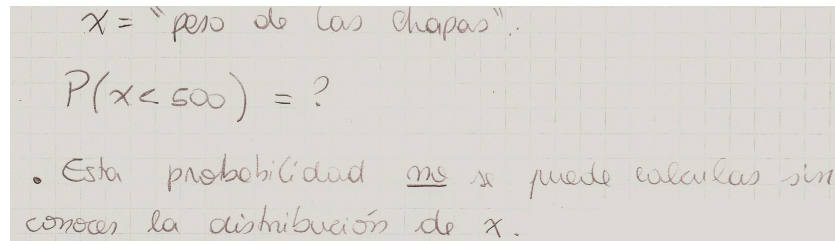 x = "peso de las chapas".
P(x < 500) = ?
• Esta probabilidad no se puede calcular sin
conocer la distribución de x.